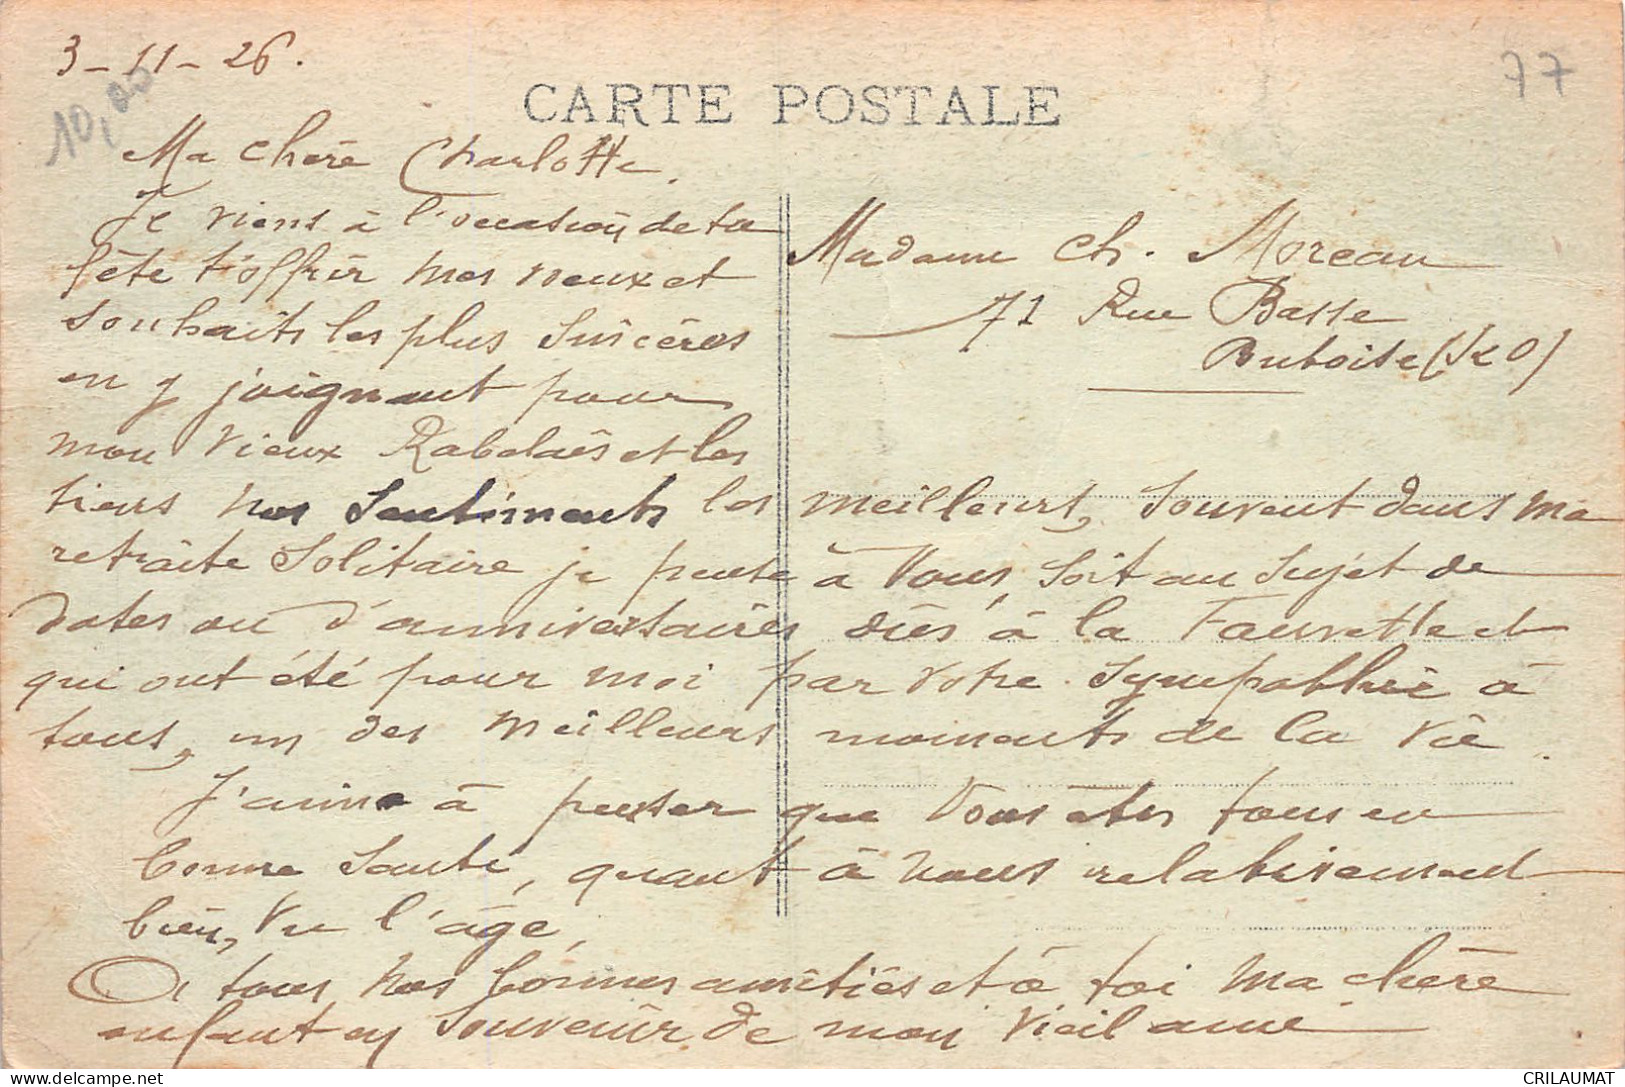 3-11-26.
10,00
77
CARTE POSTALE
Ma chère Charlotte,
Je viens à l'occasion de ta
fête t'offrir mes voeux et
souhaits les plus sincères
en y joignant pour
mon vieux Rabelais et les
tiens nos sentiments les meilleurs, souvent dans ma
retraite solitaire je pense à vous, soit au sujet de
dates ou d'anniversaires dûs à la Fauvette et
qui ont été pour moi par votre sympathie à
tous, un des meilleurs moments de la vie.
J'aime à penser que vous êtes tous en
bonne santé, quant à nous relativement
bien, vu l'âge,
A tous nos bonnes amitiés et à toi ma chère
enfant en souvenir de mon vieil ami
Madame Ch. Moreau
71 Rue Basse
Pontoise (S & O)
CRILAUMAT